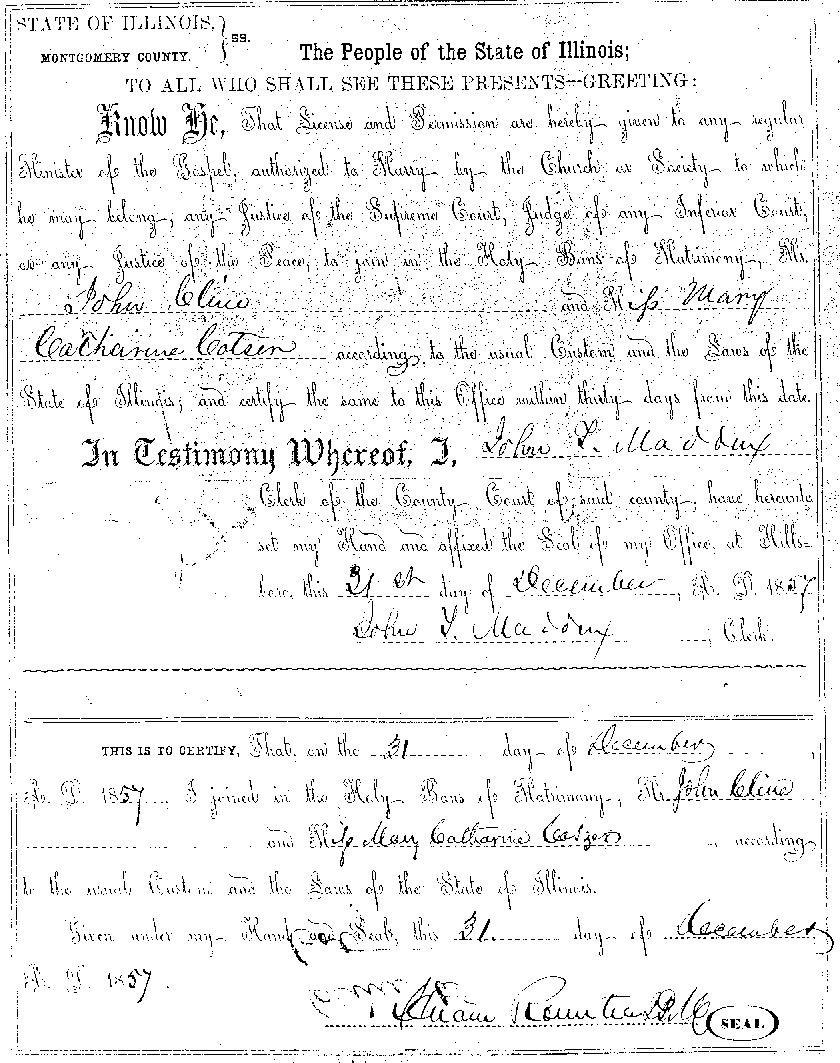 STATE OF ILLINOIS, } ss.
MONTGOMERY COUNTY.
The People of the State of Illinois;
TO ALL WHO SHALL SEE THESE PRESENTS—GREETING:
Know Ye, That License and Permission are hereby given to any regular
Minister of the Gospel, authorized to Marry by the Church or Society to which
he may belong; any Justice of the Supreme Court, Judge of any Inferior Court,
or any Justice of the Peace, to join in the Holy Bans of Matrimony, Mr.
John Cline and Miss Mary
Catharine Cotsen according to the usual Custom and the Laws of the
State of Illinois; and certify the same to this Office within thirty days from this date.
In Testimony Whereof, I, John Y. Maddux
Clerk of the County Court of said county, have hereunto
set my Hand and affixed the Seal of my Office, at Hills-
boro, this 31st day of December, A. D. 1857
John Y. Maddux, Clerk.
THIS IS TO CERTIFY, That, on the 31 day of December,
A. D. 1857 I joined in the Holy Bans of Matrimony, Mr. John Cline
and Miss Mary Catharine, according
to the usual Custom and the Laws of the State of Illinois.
Given under my Hand and Seal, this 31. day of December
A. D. 1857.
Rountree SEAL